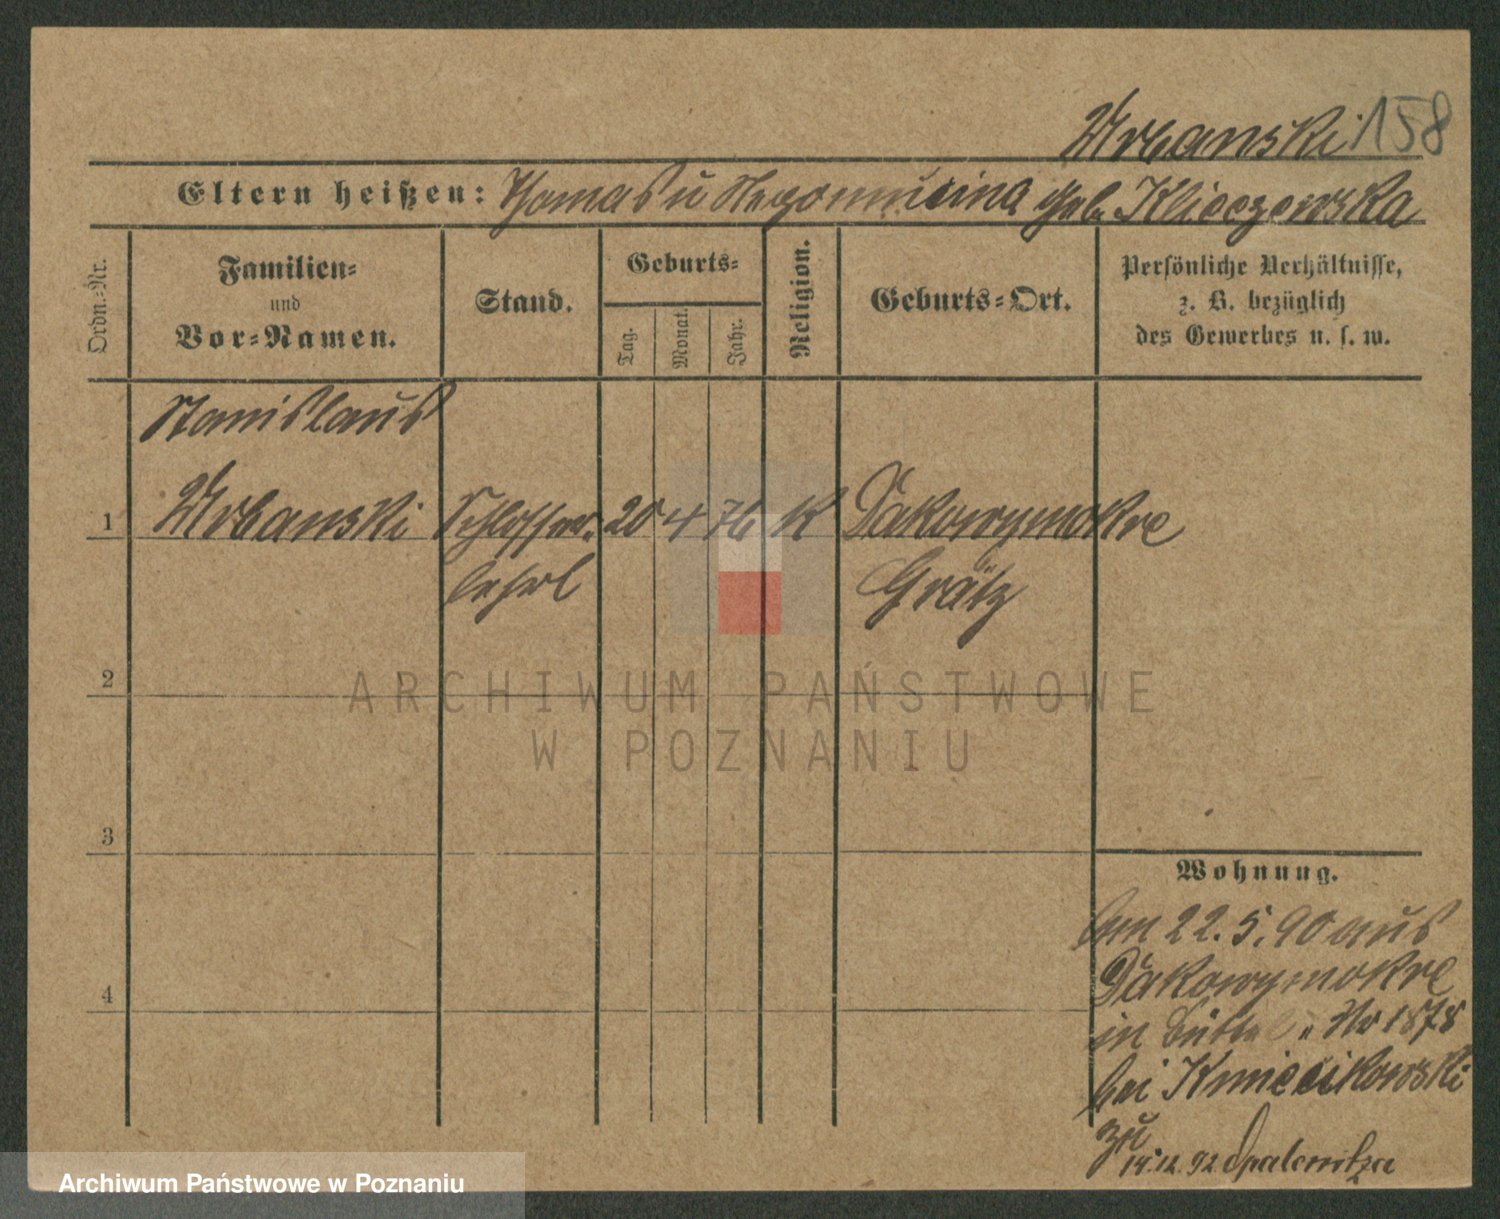 Urbanski 158
Eltern heißen: Thomas u Nepomucina geb. Klieczewska
Ordn.-Nr.
Familien-
und
Vor-Namen.
Stand.
Geburts-
Tag.
Monat.
Jahr.
Religion.
Geburts-Ort.
Persönliche Verhältnisse,
z. B. bezüglich
des Gewerbes u. s. w.
Stanislaus
1 Urbanski Schlosser- 20 4 76 K Dakowymokre
lehrl Grätz
2
ARCHIWUM PAŃSTWOWE
W POZNANIU
3
Wohnung.
Am 22.5.90 aus
Dakowymokre
4
in Nr 1878
bei Kmiecikowski
zu
14.12.92 Opalenitza
Archiwum Państwowe w Poznaniu